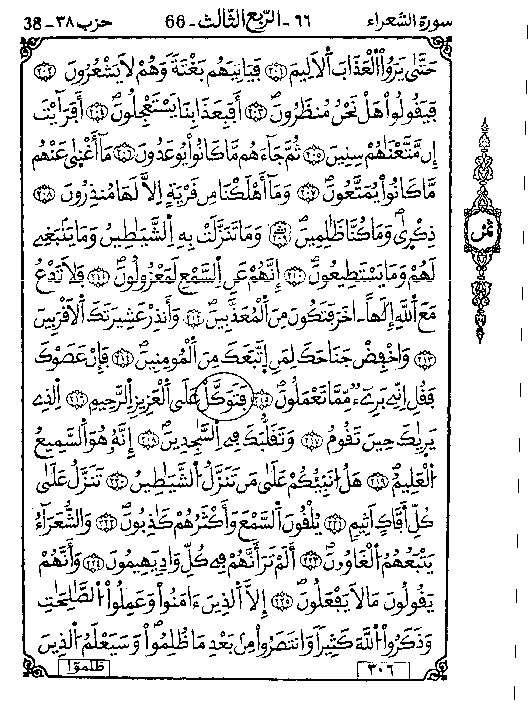 سورة الشعراء ٦٦ - الربع الثالث - 66 حزب ٣٨ - 38
حَتَّىٰ يَرَوُا۟ الْعَذَابَ الْأَلِيمَ ٢٠١ فَيَاتِيَهُم بَغْتَةً وَهُمْ لَا يَشْعُرُونَ ٢٠٢
فَيَقُولُوا۟ هَلْ نَحْنُ مُنظَرُونَ ٢٠٣ أَفَبِعَذَابِنَا يَسْتَعْجِلُونَ ٢٠٤ أَفَرَٰيْتَ
إِن مَّتَّعْنَٰهُمْ سِنِينَ ٢٠٥ ثُمَّ جَآءَهُم مَّا كَانُوا۟ يُوعَدُونَ ٢٠٦ مَآ أَغْنَىٰ عَنْهُم
مَّا كَانُوا۟ يُمَتَّعُونَ ٢٠٧ وَمَآ أَهْلَكْنَا مِن قَرْيَةٍ اِلَّا لَهَا مُنذِرُونَ ٢٠٨
ذِكْرَىٰ وَمَا كُنَّا ظَٰلِمِينَ ٢٠٩ وَمَا تَنَزَّلَتْ بِهِ الشَّيَٰطِينُ وَمَا يَنۢبَغِے
لَهُمْ وَمَا يَسْتَطِيعُونَ ٢١٠ إِنَّهُمْ عَنِ السَّمْعِ لَمَعْزُولُونَ ٢١١ فَلَا تَدْعُ
مَعَ اللَّهِ إِلَٰهاً اٰخَرَ فَتَكُونَ مِنَ الْمُعَذَّبِينَ ٢١٢ وَأَنذِرْ عَشِيرَتَكَ الْأَقْرَبِينَ
٢١٣ وَاخْفِضْ جَنَاحَكَ لِمَنِ اتَّبَعَكَ مِنَ الْمُومِنِينَ ٢١٤ فَإِنْ عَصَوْكَ
فَقُلِ انِّے بَرِےٓءٌ مِّمَّا تَعْمَلُونَ ٢١٥ فَتَوَكَّلْ عَلَى الْعَزِيزِ الرَّحِيمِ ٢١٦ الذِے
يَرَيٰكَ حِينَ تَقُومُ ٢١٧ وَتَقَلُّبَكَ فِے السَّٰجِدِينَ ٢١٨ إِنَّهُ هُوَ السَّمِيعُ
الْعَلِيمُ ٢١٩ هَلُ انَبِّئُكُمْ عَلَىٰ مَن تَنَزَّلُ الشَّيَٰطِينُ ٢٢٠ تَنَزَّلُ عَلَىٰ
كُلِّ أَفَّاكٍ اَثِيمٍ ٢٢١ يُلْقُونَ السَّمْعَ وَأَكْثَرُهُمْ كَٰذِبُونَ ٢٢٢ وَالشُّعَرَآءُ
يَتْبَعُهُمُ الْغَاوُۥنَ ٢٢٣ أَلَمْ تَرَ أَنَّهُمْ فِے كُلِّ وَادٍ يَهِيمُونَ ٢٢٤ وَأَنَّهُمْ
يَقُولُونَ مَا لَا يَفْعَلُونَ ٢٢٥ إِلَّا الَّذِينَ ءَامَنُوا۟ وَعَمِلُوا۟ الصَّٰلِحَٰتِ
وَذَكَرُوا۟ اللَّهَ كَثِيراً وَانتَصَرُوا۟ مِنۢ بَعْدِ مَا ظُلِمُوا۟ وَسَيَعْلَمُ الَّذِينَ
٣٠٦ ظلموا
ثمن